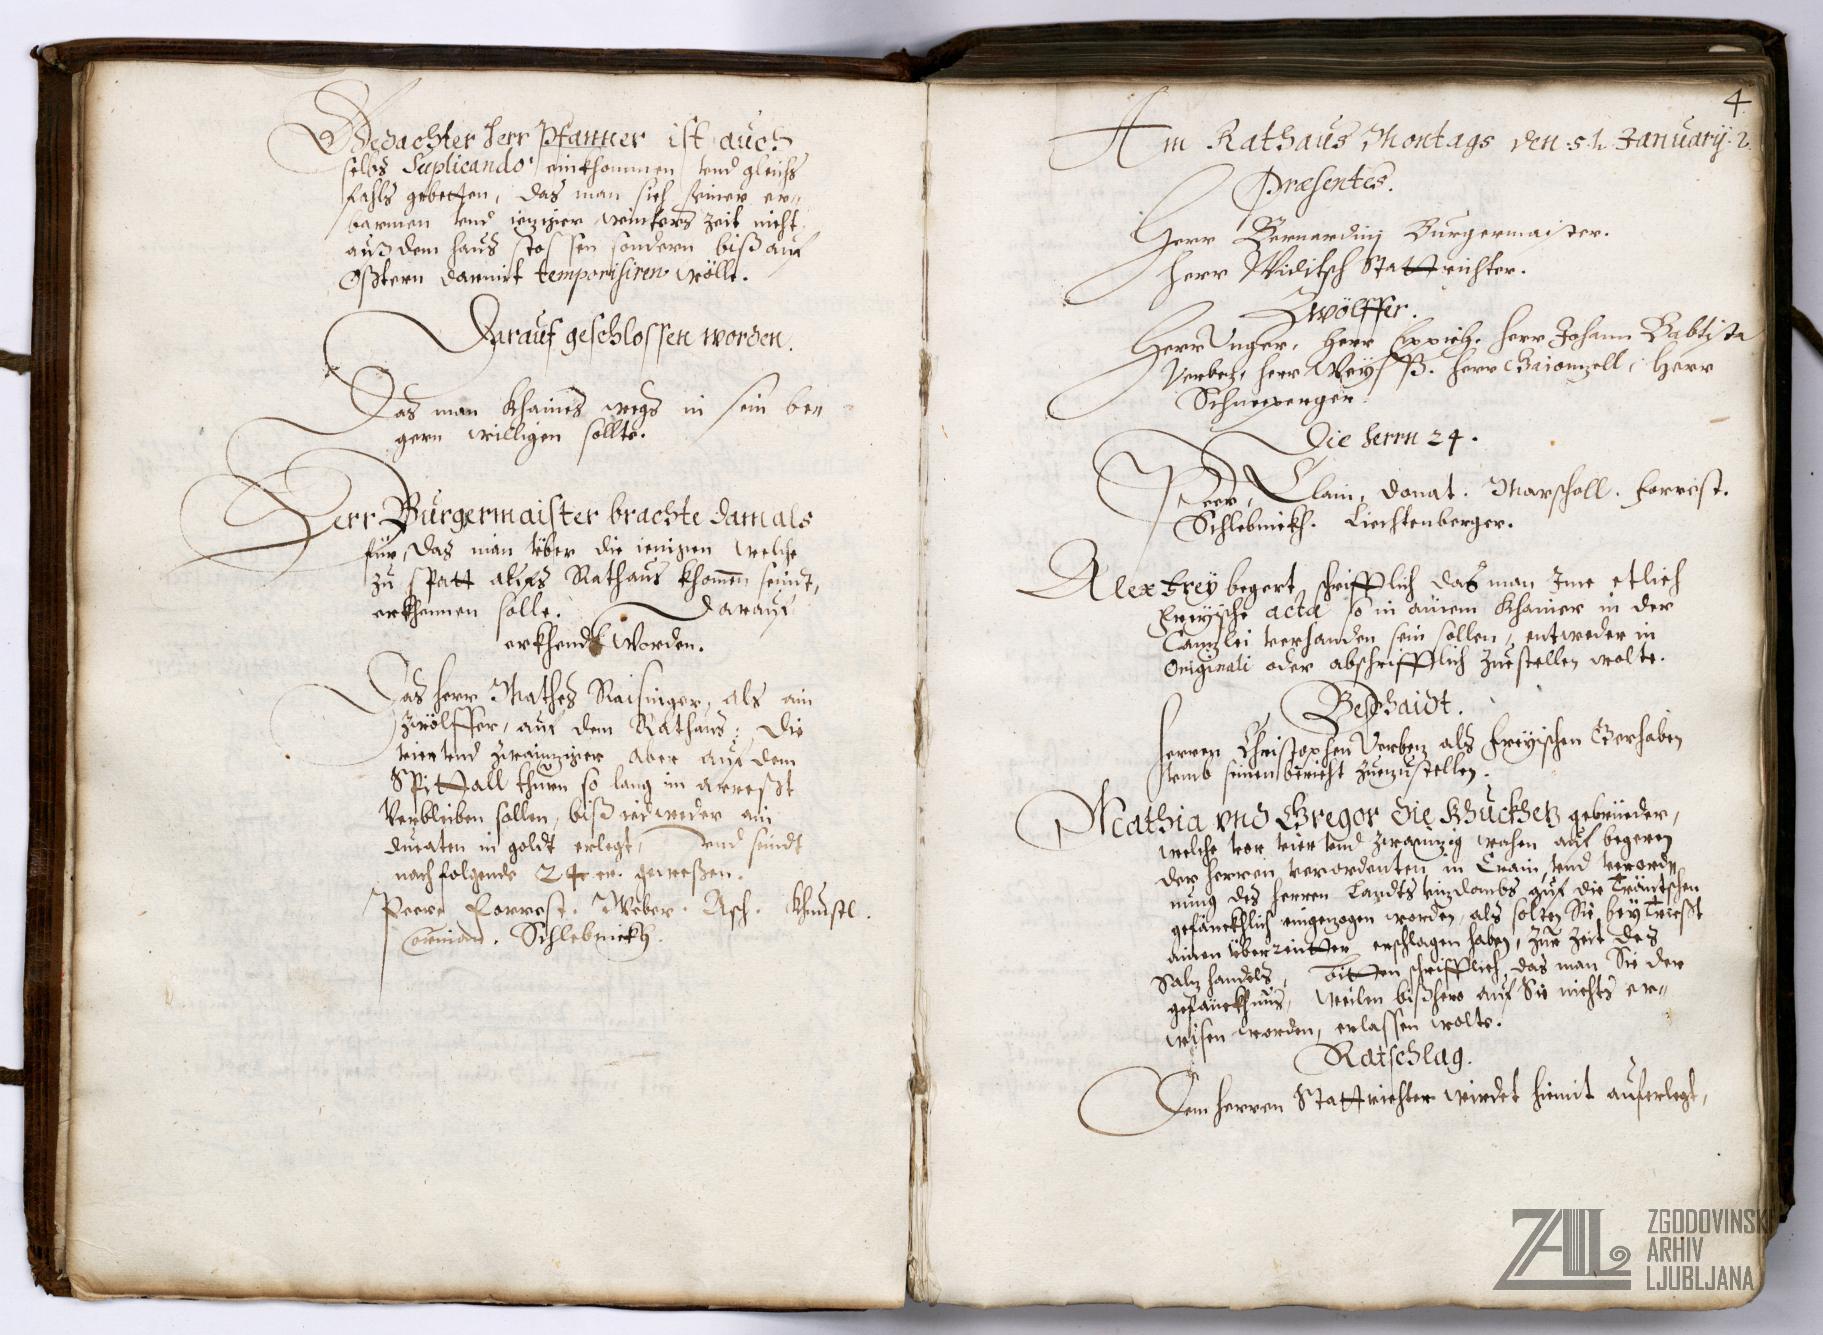 Gedachter herr Pfanner ist auch
selbs Suplicando einkhommen vnd gleichs
fahls gebetten, das man sich seiner er-
barmen vnd ieziger winters Zeit nicht
auß dem haus stossen sondern biß auf
Oßtern darmit temporisiren wölle.
Darauf geschlossen worden.
Das man khaines wegs in sein be-
gern willigen sollte.
Herr Burgermaister brachte damals
für, das man über die ienigen welche
zu spatt aufs Rathaus khommen seindt,
erkhennen solle. Darauf
erkhendt worden.
Das herr Mathes Raisinger, als ain
Zwölffer, auf dem Rathaus: Die
vier vnd zwainziger aber auf dem
Spittall thurn so lang im arresst
Verbleiben sollen, biß iedweder ain
ducaten in goldt erlegt, vnd seindt
nachfolgende 24er. gewesen.
Peere. Forrest. Weber. Asch. Khunstl.
Schlebnickh.
4
Am Rathaus Montags den 5t. January.
Præsentes.
Herr Bernardini Burgermaister.
Herr Widitsch Stattrichter.
Zwölffer.
Herr Vnger. Herr Eppich. Herr Johann Babtista
Verbez, herr Weyss. herr Herr
Schneeperger.
Die herrn 24.
Peer, Clain, Donat. Marscholl. Forrest.
Schlebnickh. Liechtenberger.
Alex Frey begert schrifftlich das man Ime etlich
Freyische acta so in ainem Khamer in der
Canzlei verhanden sein sollen, entweder in
Originali oder abschrifftlich Zuestellen wolte.
Beschaidt.
Herren Christophen Verbez als Freyischen Gerhaben
vmb seinen bericht Zuezustellen.
Mathia vnd Gregor die Khuckhez gebrüeder,
welche vor vier vnd zwainzig wochen auf begeren
der herren verordenten in Crain, vnd verord-
nung des herren Landts vizdombs auf die Träntschen
gefänckhlich eingezogen worden, als solten Sie bey Triesst
ainen überreitter erschlagen haben, zur Zeit des
Salz handels, bitten schrifftlich, das man Sie der
gefänckhnus, weilen bißhero auf Sie nichts er-
wisen worden, erlassen wolte.
Ratschlag.
Dem herren Stattrichter wirdet hiemit auferlegt,
ZAL
ZGODOVINSKI
ARHIV
LJUBLJANA